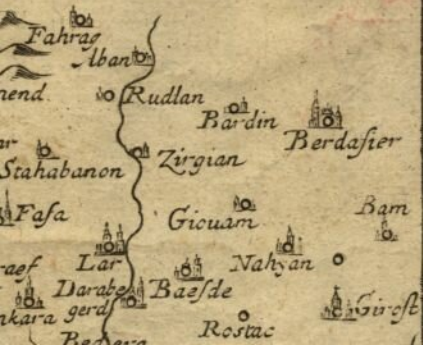 Fahrag
Alban
nend
Rudlan
Bardin
Berdasier
ar
Stahabanon
Zirgian
Fasa
Giouam
Bam
Lar
Nahyan
raef
Darabe
gerd
Baesde
nkara
Girost
Rostac